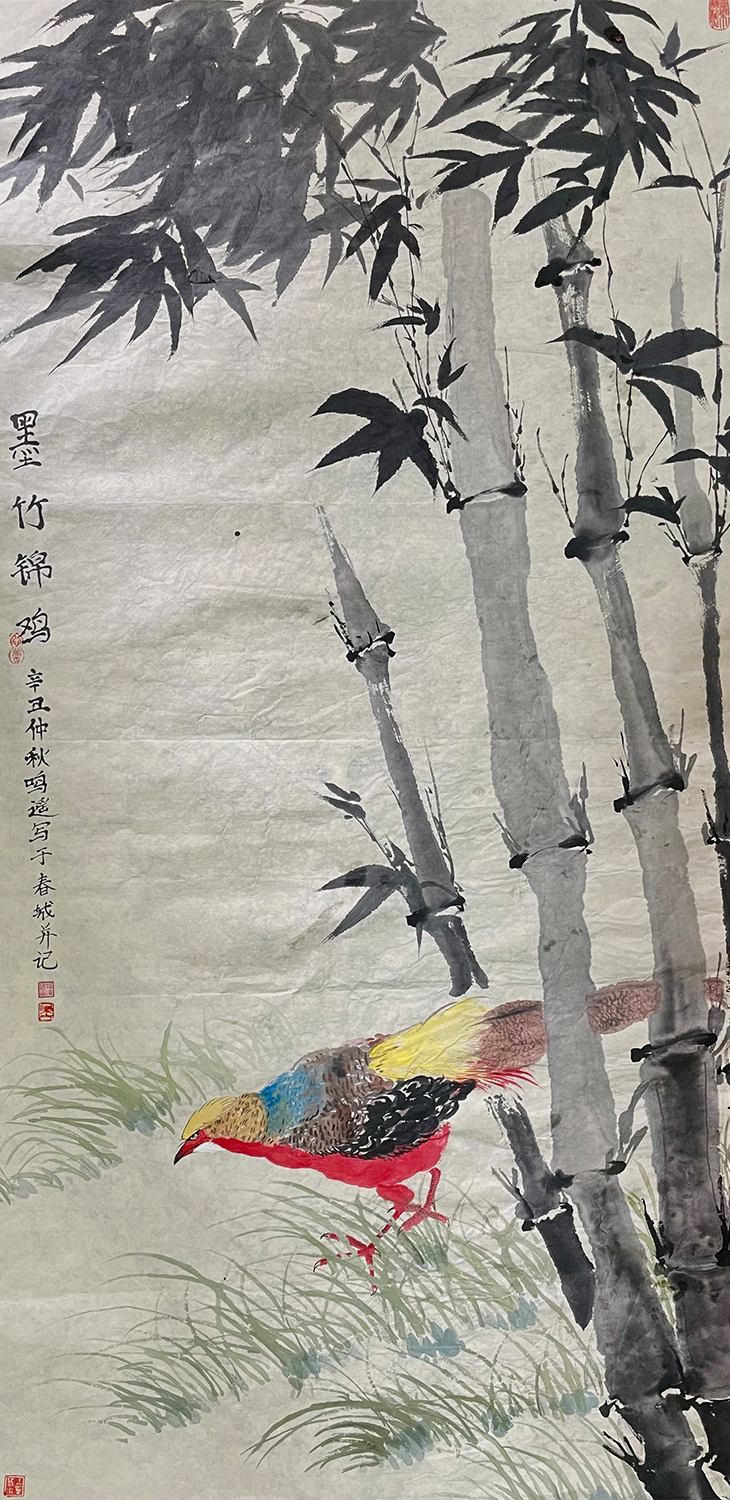 墨竹锦鸡
辛丑仲秋鸣遥写于春城并记